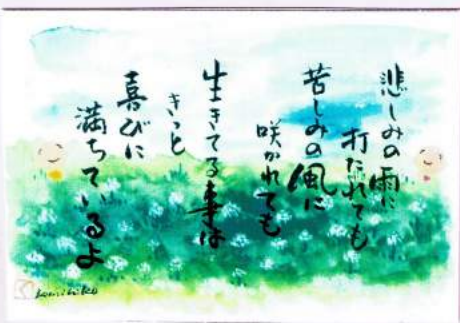 悲しみの雨に
打たれても
苦しみの風に
咲かれても
生きてる事は
きっと
喜びに
満ちているよ